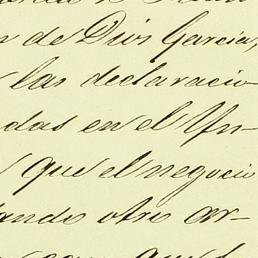 n de Dios Garcia,
las declaracio
das en el Yn-
que el negocio
ando otro ar-